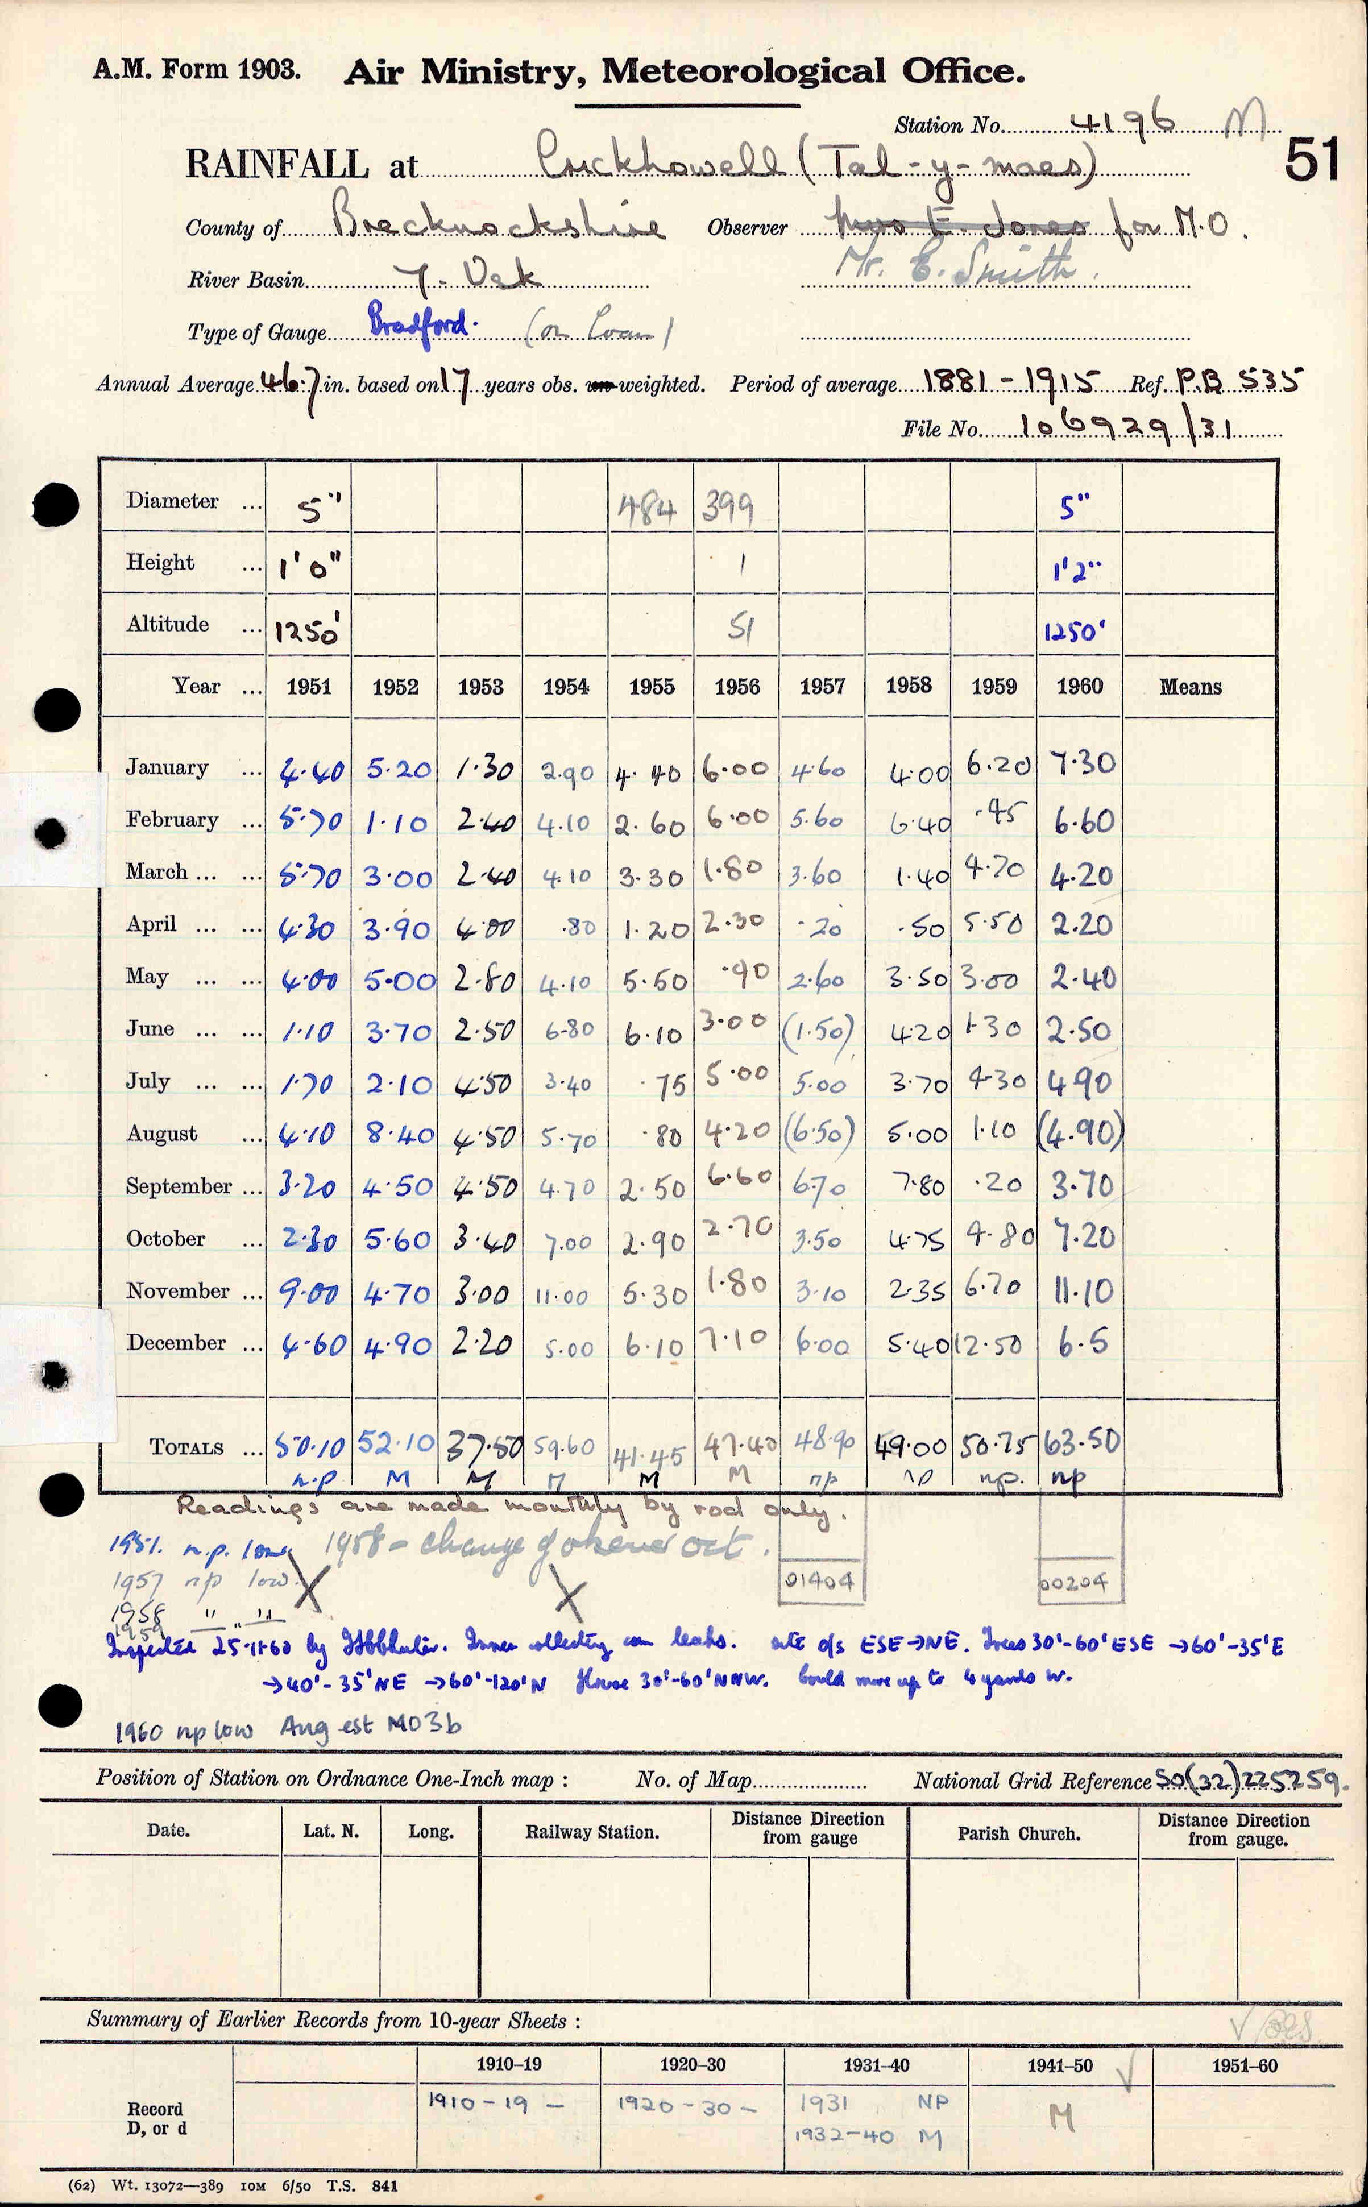 A.M. Form 1903. Air Ministry, Meteorological Office.
Station No. 4196 M
51
RAINFALL at Crickhowell (Tal-y-maes)
County of Brecknockshire Observer Mrs E. Jones for M.O.
River Basin 7. Usk Mr. E. Smith.
Type of Gauge Bradford. (on loan)
Annual Average 46.7 in. based on 17 years obs. un weighted. Period of average 1881-1915 Ref. P.B 535
File No. 106929/31
Diameter ... 5" 484 399 5"
Height ... 1'0" 1 1'2"
Altitude ... 1250' 51 1250'
Year ... 1951 1952 1953 1954 1955 1956 1957 1958 1959 1960 Means
January ... 4.40 5.20 1.30 2.90 4.40 6.00 4.60 4.00 6.20 7.30
February ... 5.70 1.10 2.40 4.10 2.60 6.00 5.60 6.40 .45 6.60
March ... ... 5.70 3.00 2.40 4.10 3.30 1.80 3.60 1.40 4.70 4.20
April ... ... 4.30 3.90 4.00 .80 1.20 2.30 .20 .50 5.50 2.20
May ... ... 4.00 5.00 2.80 4.10 5.50 .90 2.60 3.50 3.00 2.40
June ... ... 1.10 3.70 2.50 6.80 6.10 3.00 (1.50) 4.20 1.30 2.50
July ... ... 1.70 2.10 4.50 3.40 .75 5.00 5.00 3.70 4.30 4.90
August ... 4.10 8.40 4.50 5.70 .80 4.20 (6.50) 5.00 1.10 (4.90)
September ... 3.20 4.50 4.50 4.70 2.50 6.60 6.70 7.80 .20 3.70
October ... 2.30 5.60 3.40 7.00 2.90 2.70 3.50 4.75 4.80 7.20
November ... 9.00 4.70 3.00 11.00 5.30 1.80 3.10 2.35 6.70 11.10
December ... 4.60 4.90 2.20 5.00 6.10 7.10 6.00 5.40 12.50 6.5
TOTALS ... 50.10 52.10 37.50 59.60 41.45 47.40 48.90 49.00 50.75 63.50
n.p. M M M M M np np np. np
Readings are made monthly by rod only.
1951. n.p. low 1958 - change of observer oct.
1957 np low X X 01404 00204
1958 " " "
1959
Inspected 25-11-60 by Inner collecting can leaks. site o/s ESE→NE. Trees 30'-60' ESE →60'-35'E
→40'-35'NE →60'-120'N House 30'-60'NNW. Could move up to 4 yards W.
1960 np low Aug est MO3b
Position of Station on Ordnance One-Inch map : No. of Map National Grid Reference SO(32)225259.
Date. Lat. N. Long. Railway Station. Distance Direction from gauge Parish Church. Distance Direction from gauge.
Summary of Earlier Records from 10-year Sheets :
1910-19 1920-30 1931-40 1941-50 1951-60
Record D, or d 1910-19 - 1920-30- 1931 NP M
1932-40 M
(62) Wt. 13072—389 10M 6/50 T.S. 841